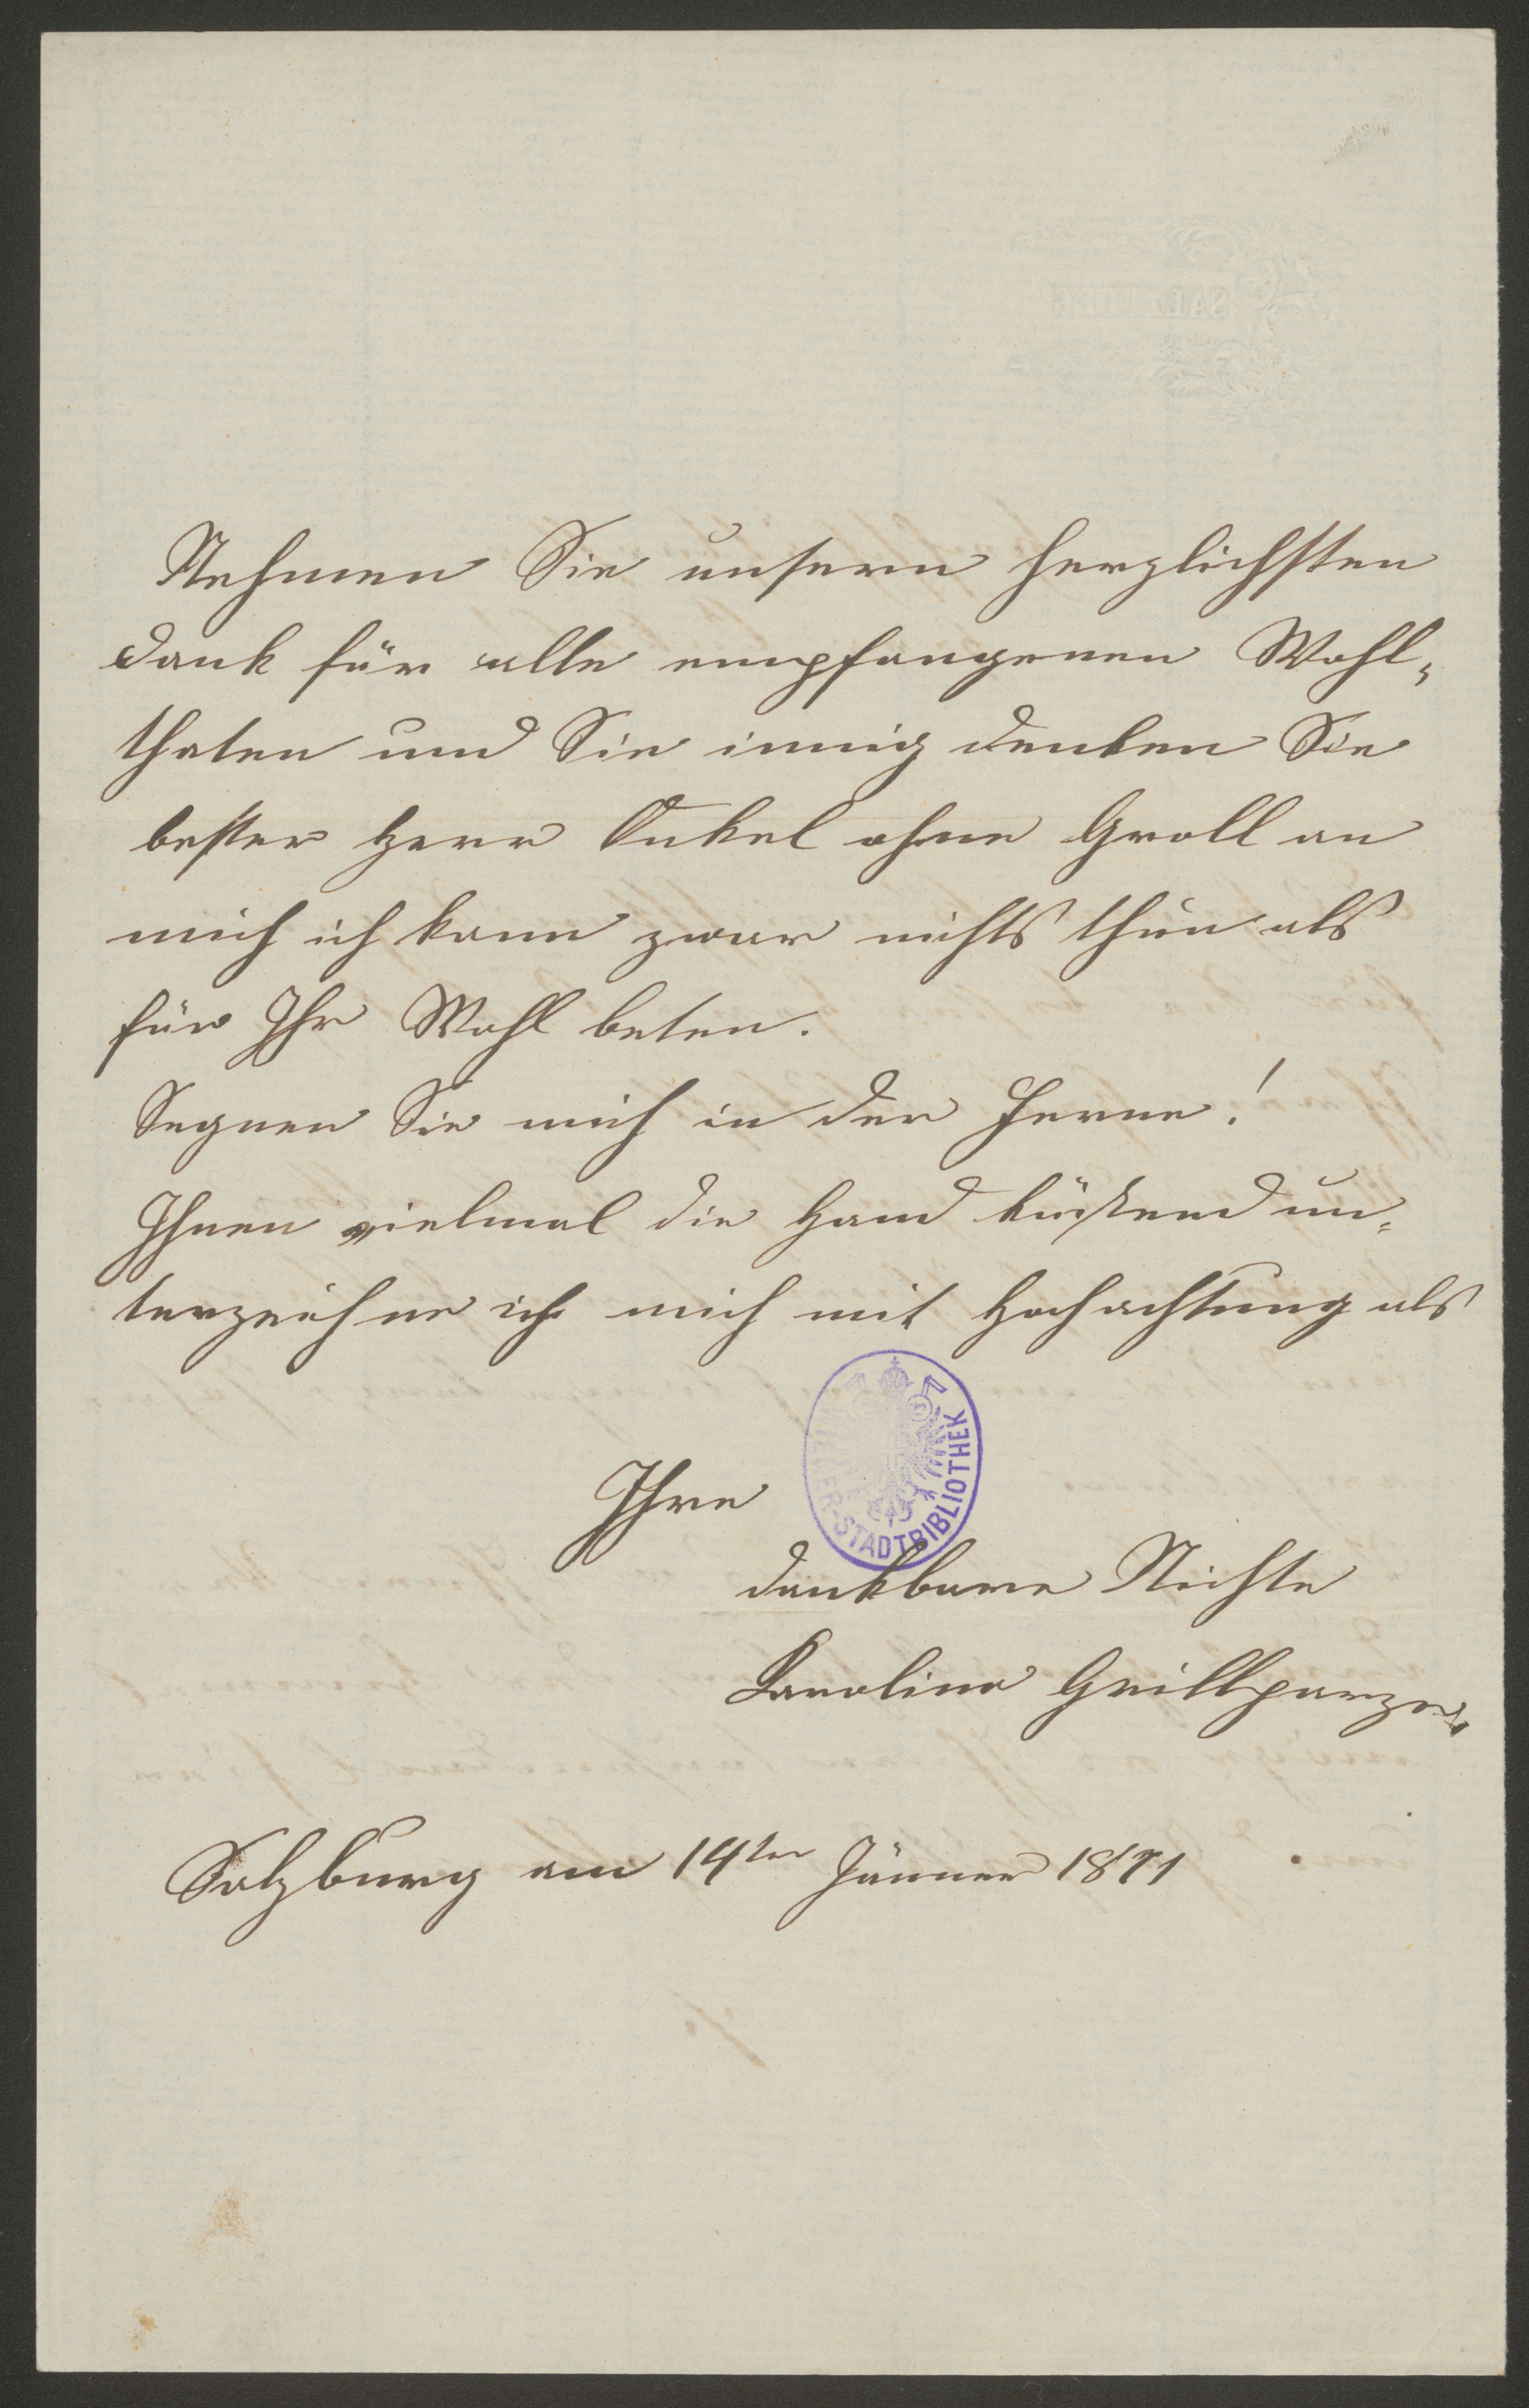 Nehmen Sie unsern herzlichsten
Dank für alle empfangenen Wohl-
thaten und Sie innig denken Sie
bester Herr Onkel ohne Groll an
mich ich kann zwar nichts thun als
für Ihr Wohl beten.
Segnen Sie mich in der Ferne!
Ihnen vielmal die Hand küssend un-
terzeichne ich mich mit Hochachtung als
Ihre
WIENER-STADTBIBLIOTHEK
dankbare Nichte
Karoline Grillparzer
Salzburg am 14ten Jänner 1871